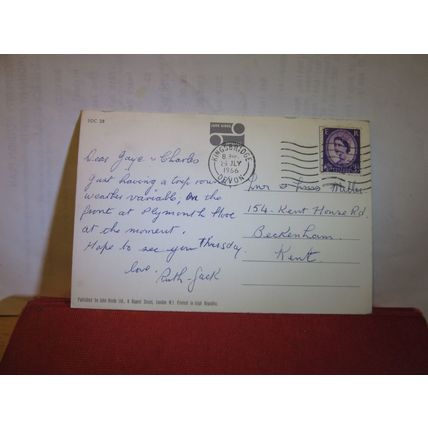 SDC 28
JOHN HINDE
KINGSBRIDGE
DEVON
8
29 JLY
1966
Dear Gaye & Charles
Just having a trip round
weather variable, on the
front at Plymouth Hoe
at the moment.
Hope to see you Thursday.
love.
Ruth & Jack
154 Kent House Rd.
Beckenham.
Kent.
Published by John Hinde Ltd.,
Street, London W.1. Printed in Irish Republic.